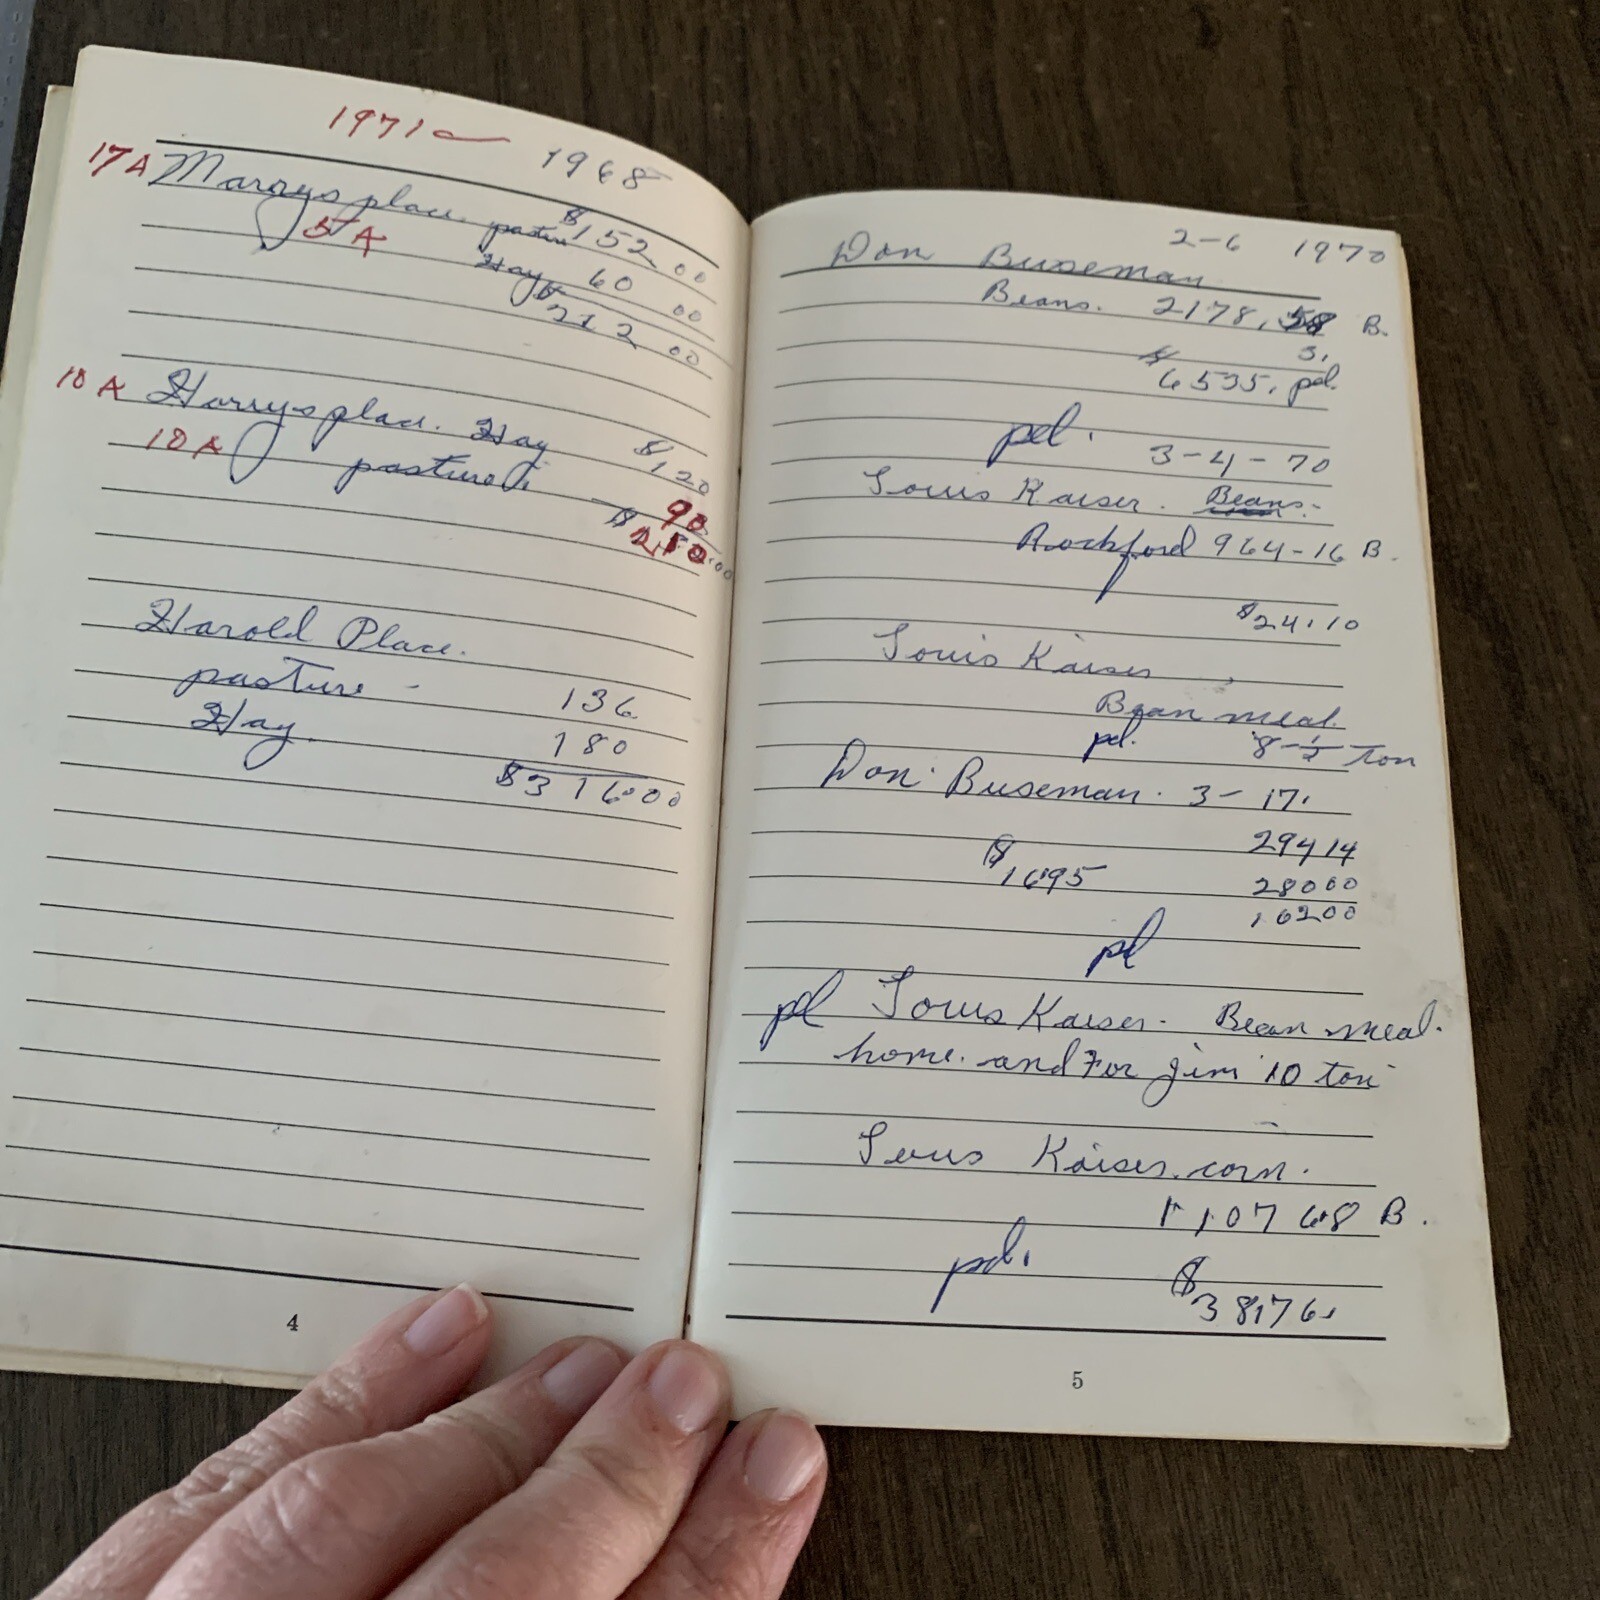 1971 - 1968
17 A Marrys place. pasture $152.00
5 A Hay 60 00
$212 00
10 A Harrys place. Hay $120
10 A pasture. 90
$210.00
Harold Place.
pasture - 136
Hay. 180
$316.00
4
2-6 1970
Don Buseman
Beans. 2178, B.
3.
$6535. pd.
pd. 3-4-70
Louis Kaiser. Beans.
Rockford 964-16 B.
$24.10
Louis Kaiser
Bean meal.
pd. 8-1/2 Ton
Don Buseman. 3-17.
29414
$1695 28000
16200
pd
pd Louis Kaiser. Bean meal.
home. and For Jim 10 ton
Louis Kaiser. corn.
1107 68 B.
pd. $
3876.
5